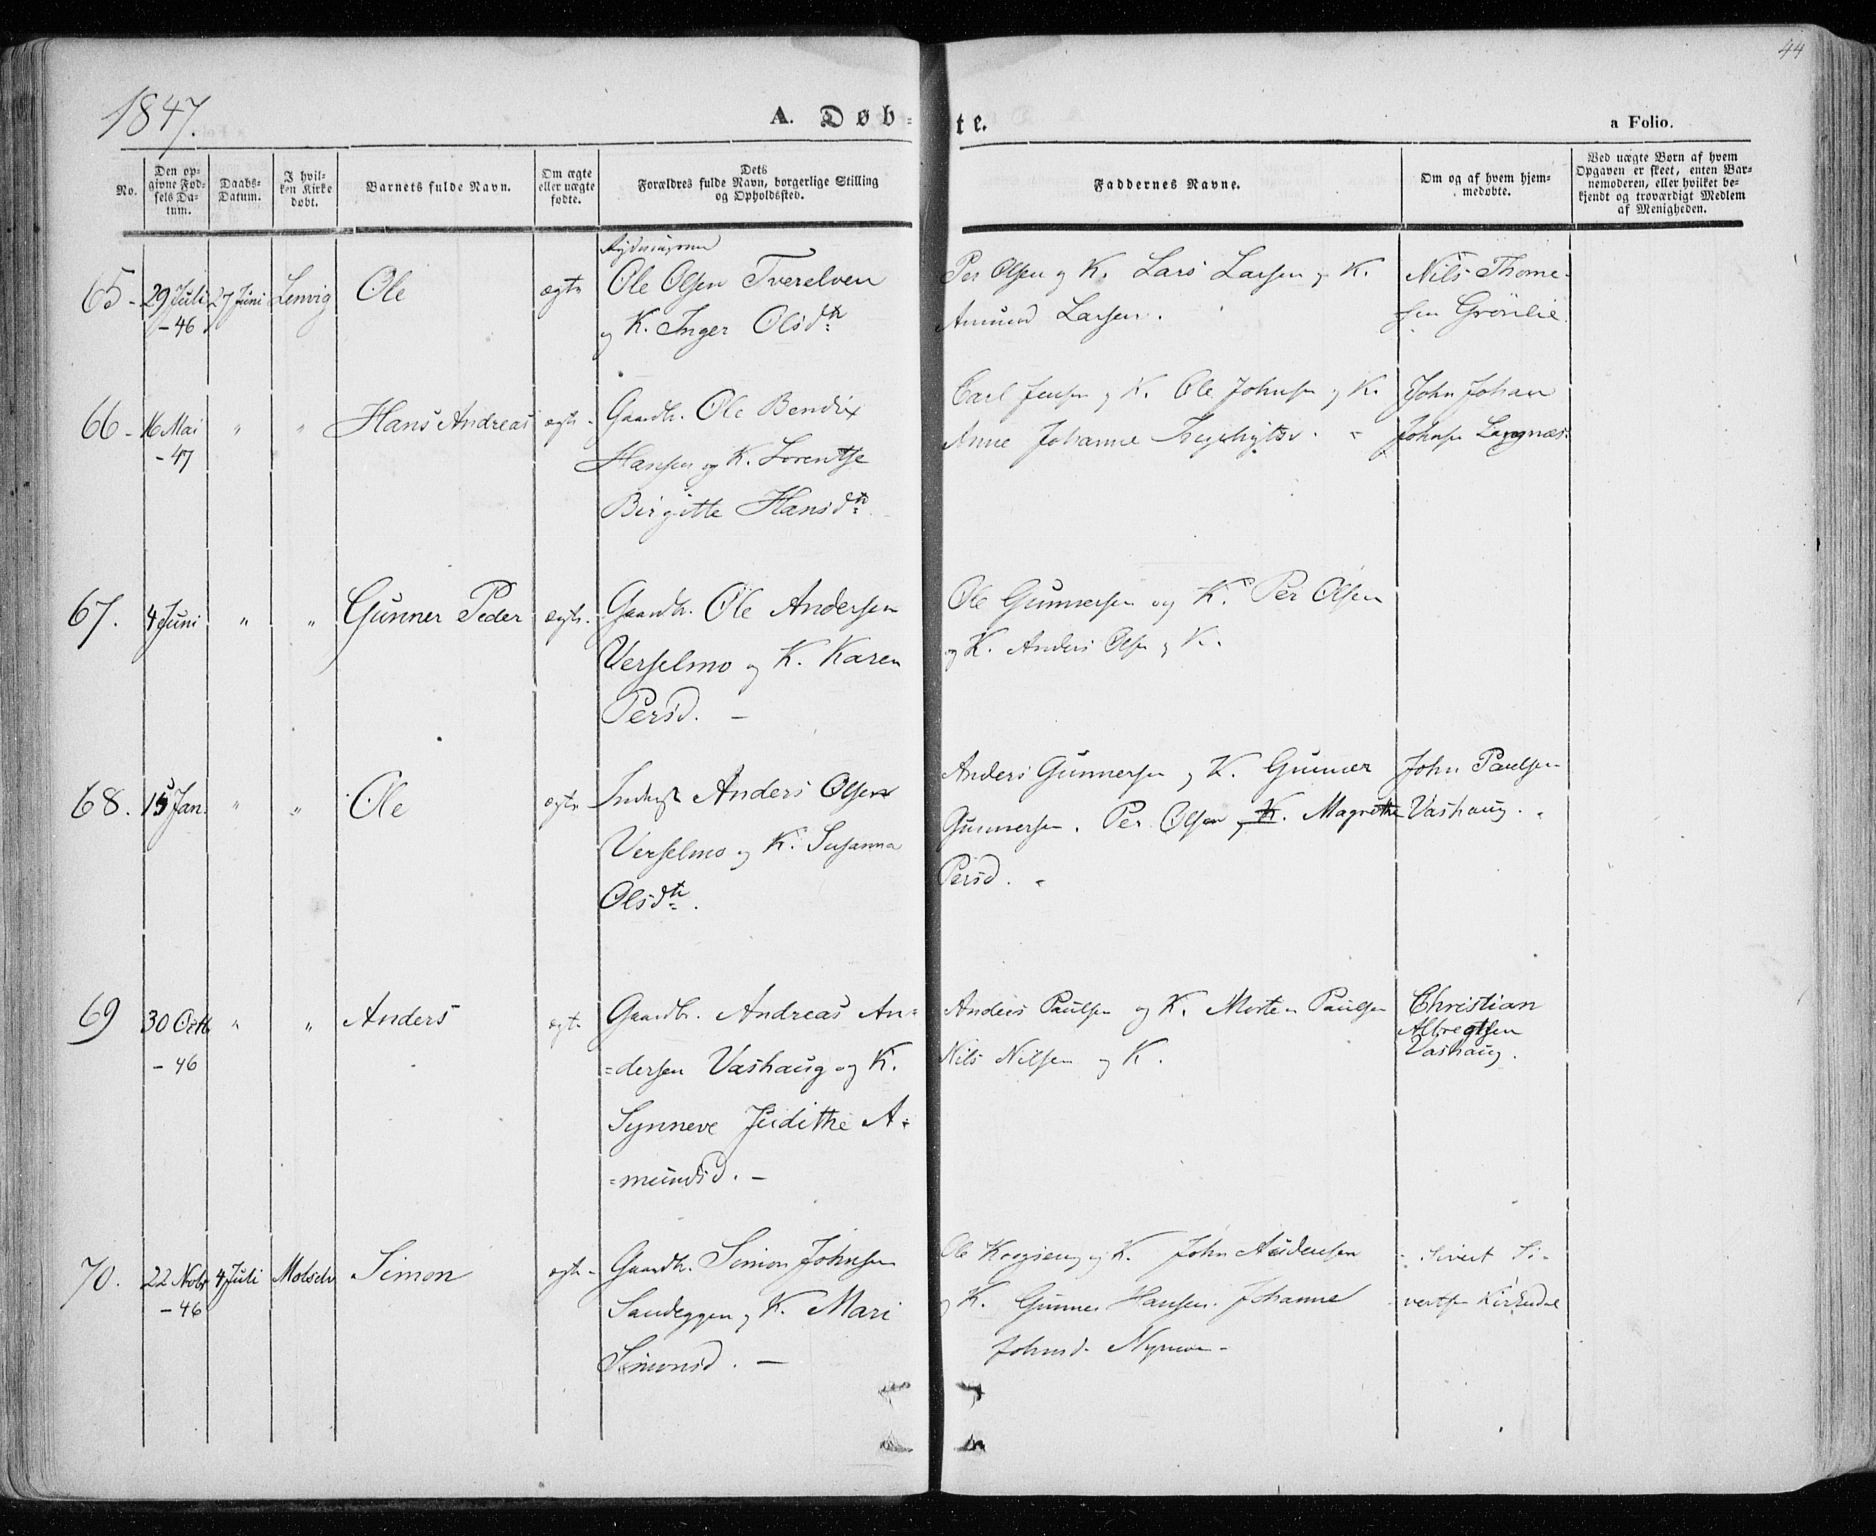 44
1847.
A. Døb-
te.
a Folio.
No.
Den op-
givne Fød-
sels Da-
tum.
Daabs-
Datum.
I hvil-
ken Kirke
døbt.
Barnets fulde Navn.
Om ægte
eller uægte
fødte.
Dets
Forældres fulde Navn, borgerlige Stilling
og Opholdssted.
Faddernes Navne.
Om og af hvem hjem-
medøbte.
Ved uægte Børn af hvem
Opgaven er skeet, enten Bar-
nemoderen, eller hvilket be-
kjendt og troværdigt Medlem
af Menigheden.
65 - 29 Juli
- 46
27 Juni
Lenvig
Ole
ægte
Ole Olsen Tverelven
og K. Inger Olsdtr
Per Olsen og K. Lars Larsen og K.
Amund Larsen.
Nils Thome-
sen Grönlie
66 - 16 Mai
- 47
" "
Hans Andreas
ægte -
Gaardbr. Ole Bendix
Hansen og K. Lorentse
Birgitte Hansdtr
Carl Jensen og K. Ole Johnsen og K.
Anne Johanne
John Johan
Johnsen Langnæs.
67. 4 Juni
" "
Gunner Peder
ægte.
Gaardbr. Ole Andersen
Verselmo og K. Karen
Persd. -
Ole Gunnersen og K. Per Olsen
og K. Anders Olsen og K.
68. 15 Jan.
" "
Ole
ægte -
Inderst Anders Olsen
Verselmo og K. Susanna
Olsdtr.
Anders Gunnersen og K. Gunner
Gunnersen. Per Olsen og K. Magrethe
Persd. -
John Paulsen
Vashaug.
69 30 Octb
- 46
" "
Anders
ægte
Gaardbr. Andreas An-
=dersen Vashaug og K.
Synneve Judithe A-
=mundsd. -
Anders Paulsen og K. Morten Paulsen
Nils Nilsen og K.
Christian
Albregtsen
Vashaug.
70. 22 Nobr
- 46
4 Juli
Molselv
Simon
ægte -
Gaardbr. Simon Johnsen
Sandeggen og K. Mari
Simonsd. -
Ole og K. John Andersen
og K. Gunner Hansen. Johanne
Johnsd. Nymoen -
Sivert Si-
vertsen Kirkedal